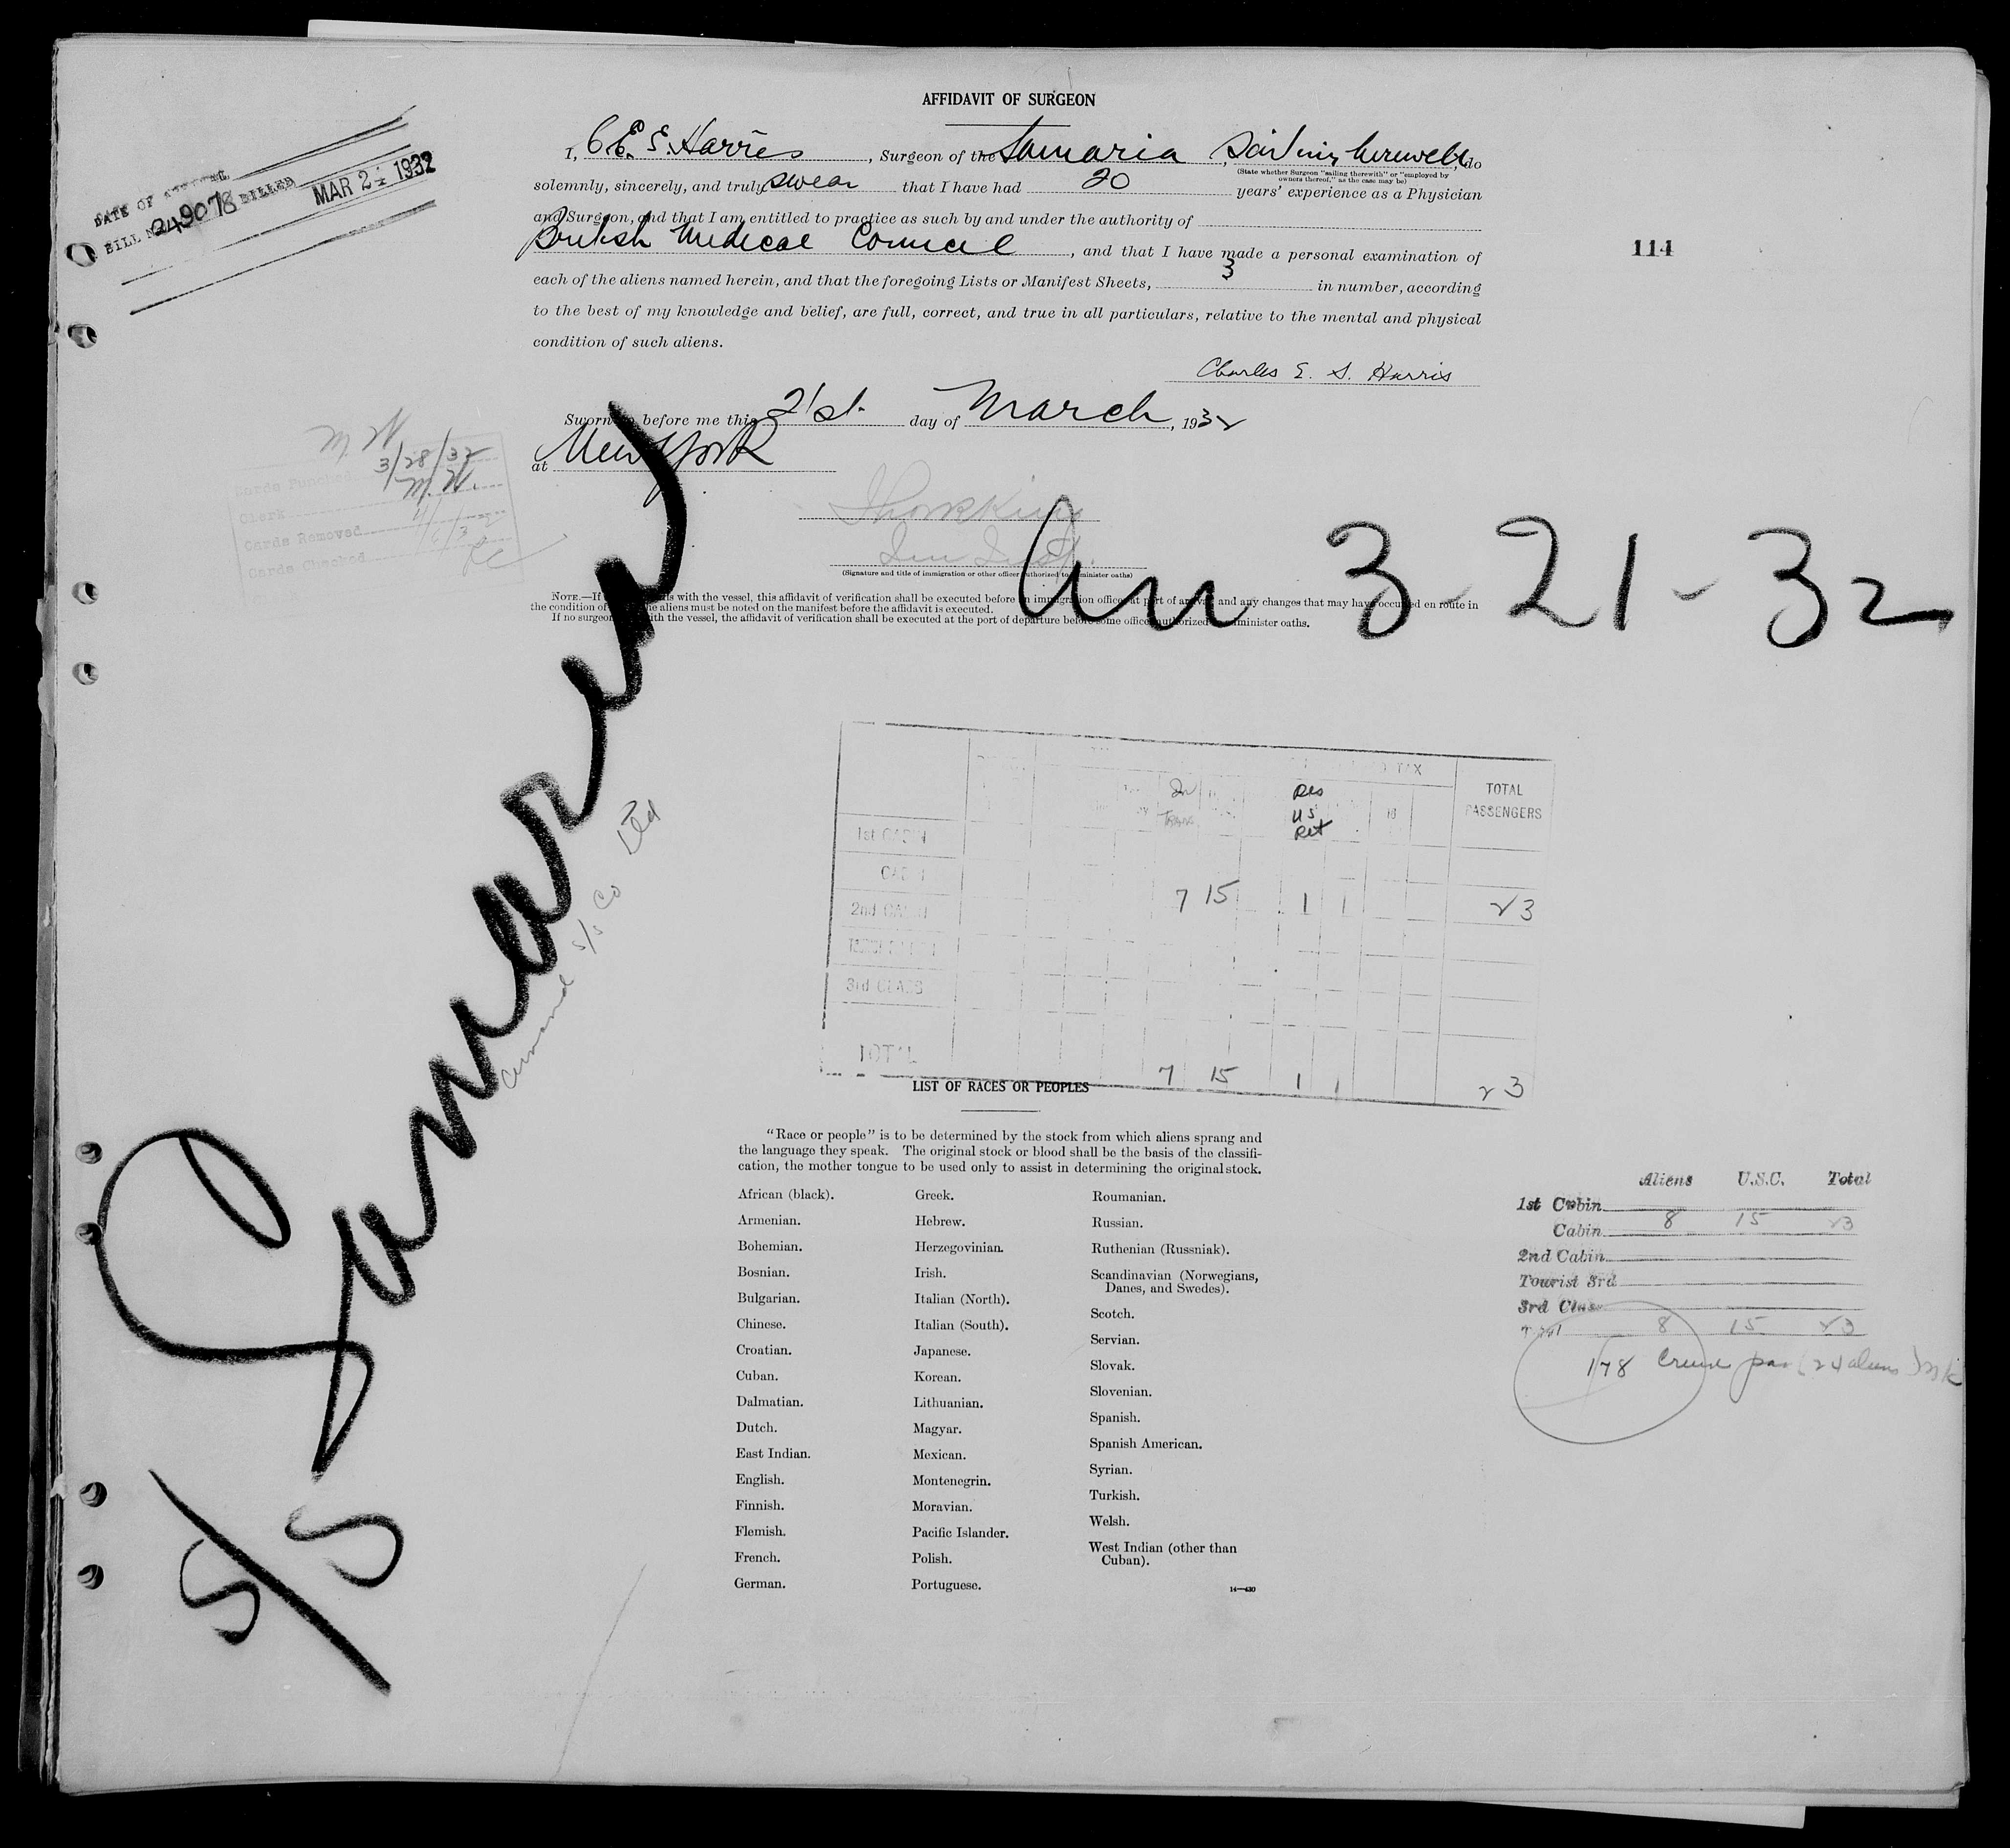 AFFIDAVIT OF SURGEON
I, C.E.S. Harris, Surgeon of the Samaria Sailing herewith, do
(State whether Surgeon "sailing therewith" or "employed by
owners thereof," as the case may be)
solemnly, sincerely, and truly swear that I have had 20 years' experience as a Physician
and Surgeon, and that I am entitled to practice as such by and under the authority of
British Medical Council, and that I have made a personal examination of
each of the aliens named herein, and that the foregoing Lists or Manifest Sheets, 3 in number, according
to the best of my knowledge and belief, are full, correct, and true in all particulars, relative to the mental and physical
condition of such aliens.
Charles E. S. Harris
Sworn to before me this 21st day of March, 1932
at New York
(Signature and title of immigration or other officer authorized to administer oaths)
NOTE.—If with the vessel, this affidavit of verification shall be executed before an immigration officer at port of arrival and any changes that may have occurred en route in
the condition of the aliens must be noted on the manifest before the affidavit is executed.
If no surgeon with the vessel, the affidavit of verification shall be executed at the port of departure before some officer authorized to administer oaths.
DATE OF
BILL No 249078 BILLED MAR 24 1932
114
M. W.
Cards Punched 3/28/32
Clerk M. W.
Cards Removed
Cards Checked
Arr 3-21-32
S/S Samaria
Cunard S/S Co Ltd
TAX
TOTAL
PASSENGERS
In
Trans
Res
US
Ret
1st CABIN
CABIN
2nd CABIN 7 15 1 1 23
3rd CLASS
TOTAL 7 15 1 1 23
LIST OF RACES OR PEOPLES
"Race or people" is to be determined by the stock from which aliens sprang and
the language they speak. The original stock or blood shall be the basis of the classifi-
cation, the mother tongue to be used only to assist in determining the original stock.
African (black).
Armenian.
Bohemian.
Bosnian.
Bulgarian.
Chinese.
Croatian.
Cuban.
Dalmatian.
Dutch.
East Indian.
English.
Finnish.
Flemish.
French.
German.
Greek.
Hebrew.
Herzegovinian.
Irish.
Italian (North).
Italian (South).
Japanese.
Korean.
Lithuanian.
Magyar.
Mexican.
Montenegrin.
Moravian.
Pacific Islander.
Polish.
Portuguese.
Roumanian.
Russian.
Ruthenian (Russniak).
Scandinavian (Norwegians,
Danes, and Swedes).
Scotch.
Servian.
Slovak.
Slovenian.
Spanish.
Spanish American.
Syrian.
Turkish.
Welsh.
West Indian (other than
Cuban).
14—430
Aliens U.S.C. Total
1st Cabin
Cabin 8 15 23
2nd Cabin
Tourist 3rd
3rd Class
Total 8 15 23
178 Cruise pas (24 aliens)